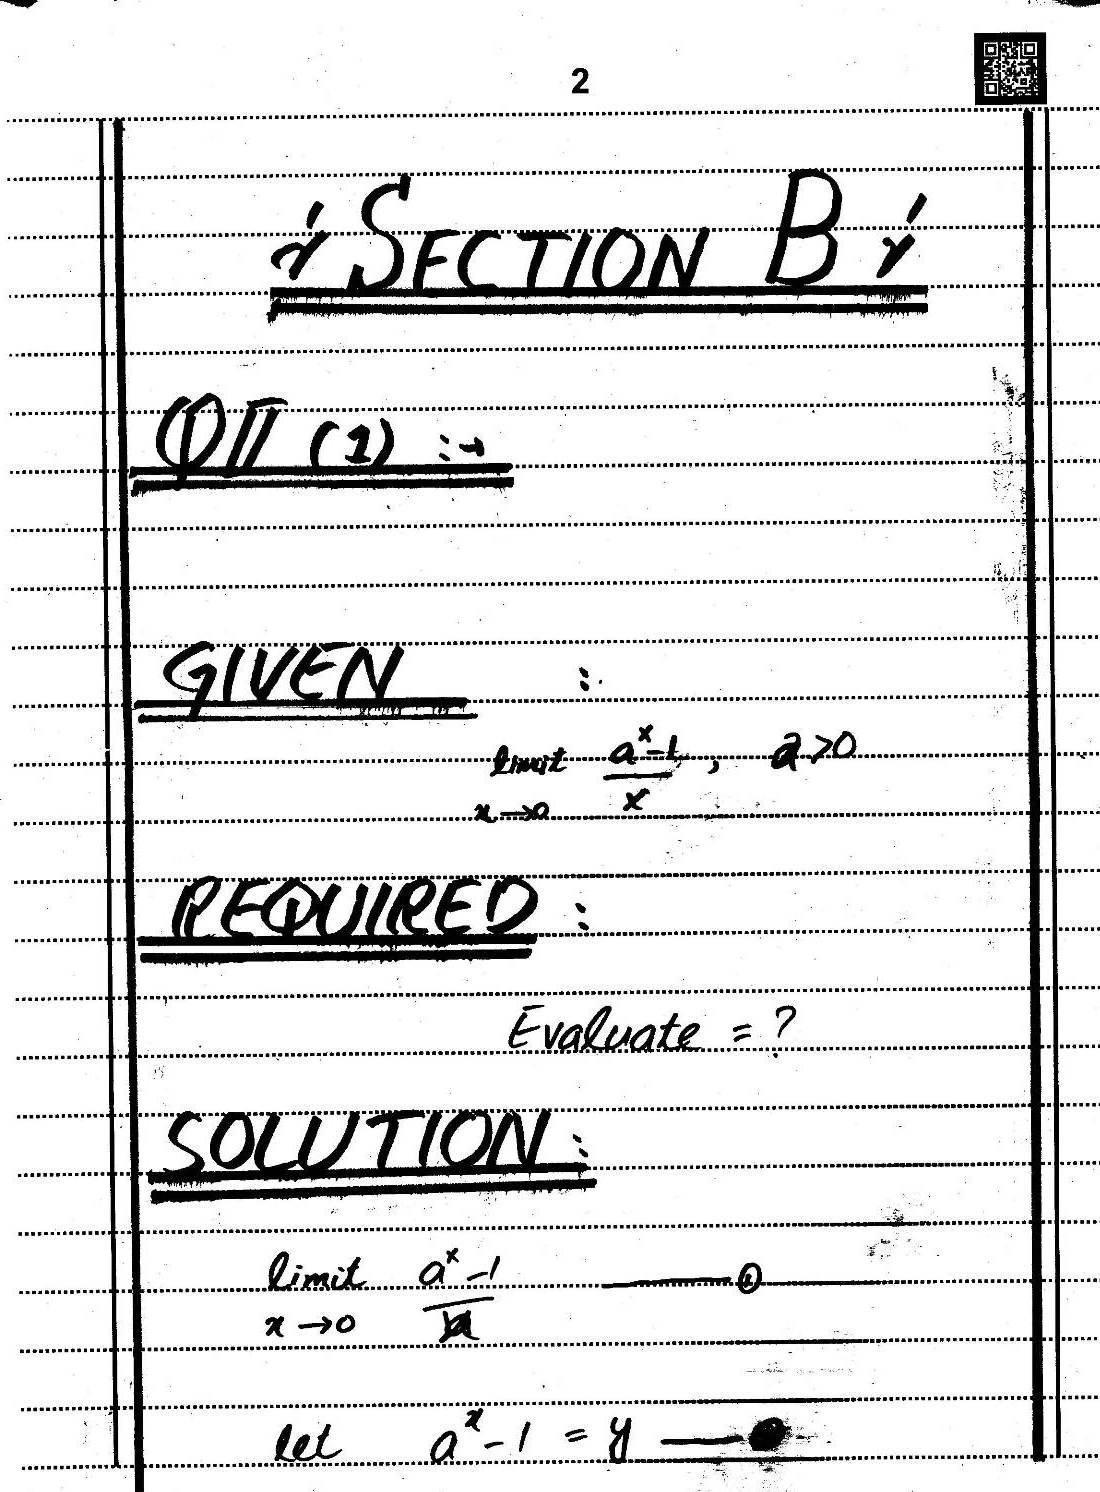 2
SECTION B
QII (1) :→
GIVEN :
limit a^x-1 , a>0
x→0 x
REQUIRED :
Evaluate = ?
SOLUTION :
limit a^x-1
x→0
let a^x-1 = y